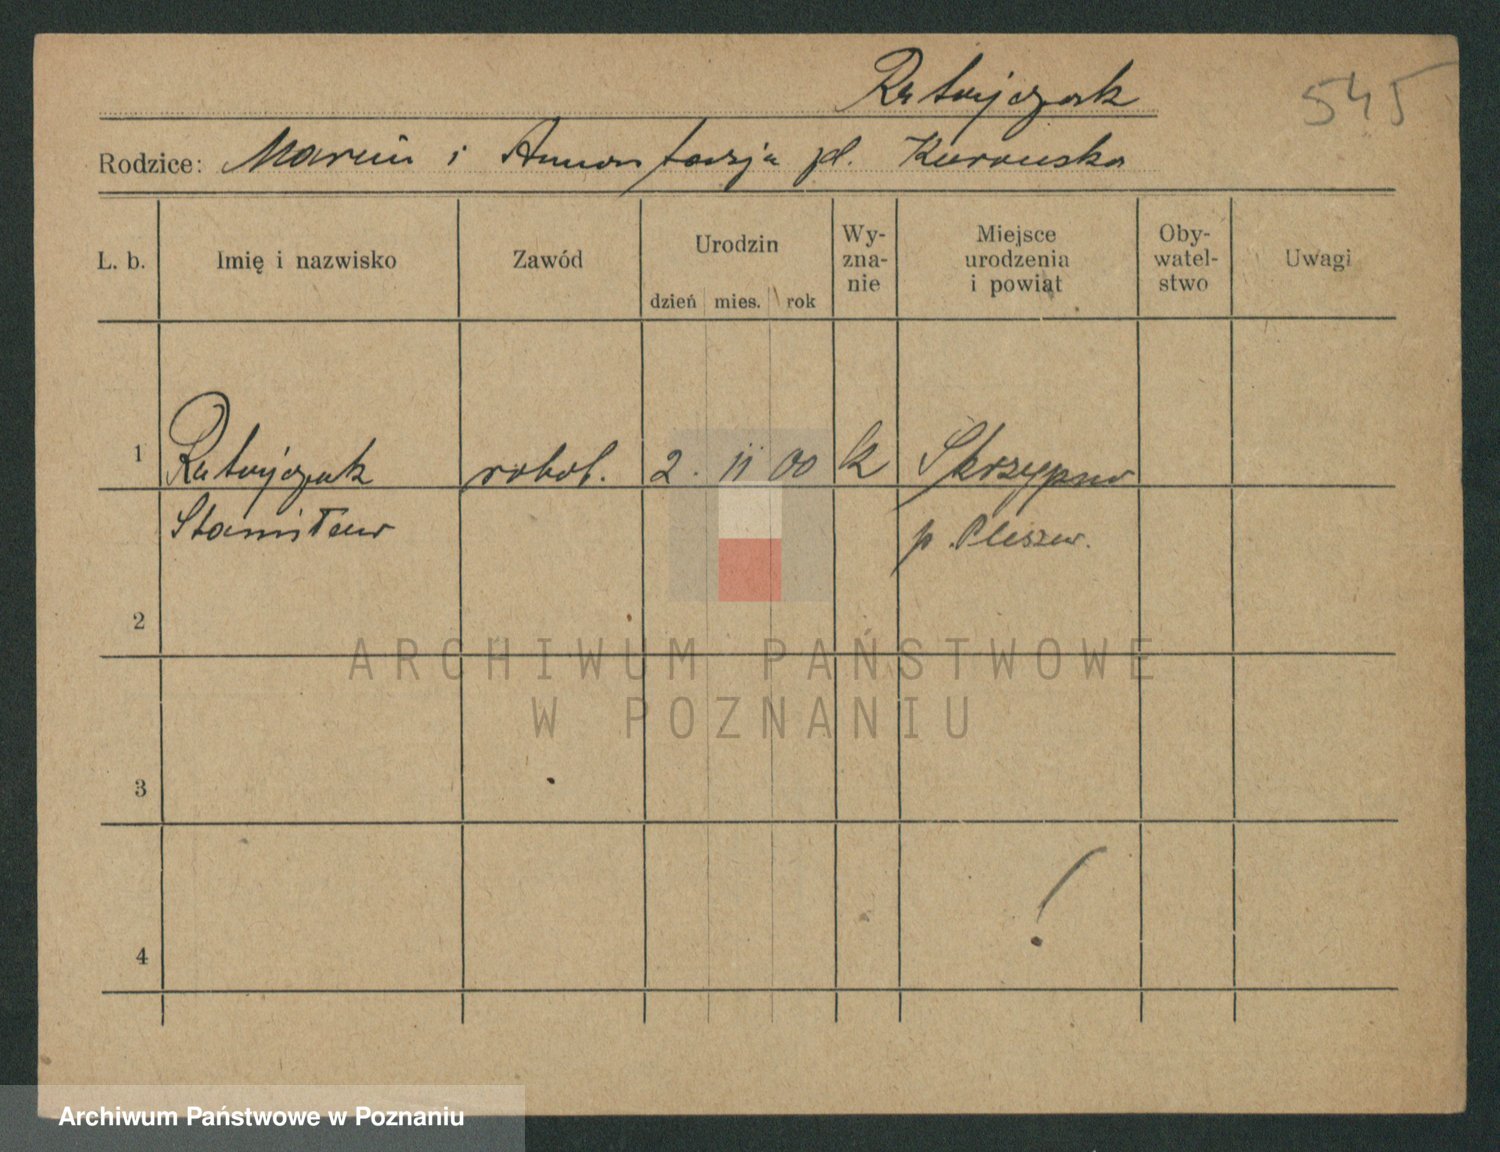 Ratajczak
545
Rodzice: Marcin i Anastazja zd. Kurowska
L. b.
Imię i nazwisko
Zawód
Urodzin
dzień mies. rok
Wy-
zna-
nie
Miejsce
urodzenia
i powiat
Oby-
watel-
stwo
Uwagi
1 Ratajczak robot. 2. 11 00 k Skrzypno
Stanisław p. Pleszew.
2
ARCHIWUM PAŃSTWOWE
W POZNANIU
3
4
Archiwum Państwowe w Poznaniu